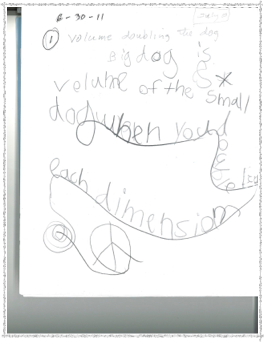 6-30-11
① Volume doubling the dog
Big dog is 8*
volume of the small
dog when you double
each dimension